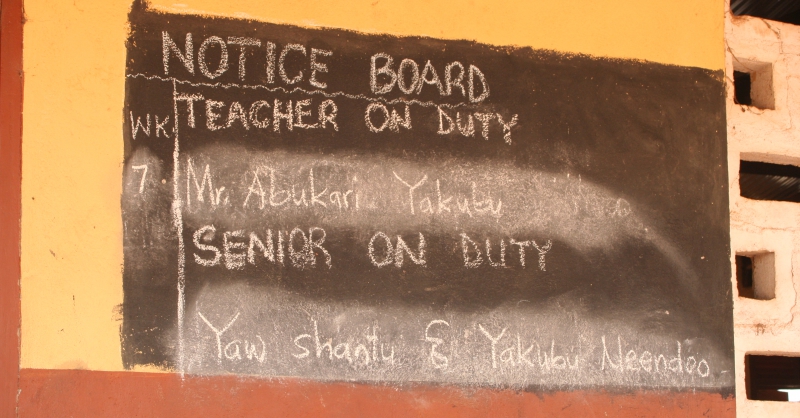 NOTICE BOARD
WK TEACHER ON DUTY
7 Mr. Abukari Yakubu
SENIOR ON DUTY
Yaw shantu & Yakubu Neendoo